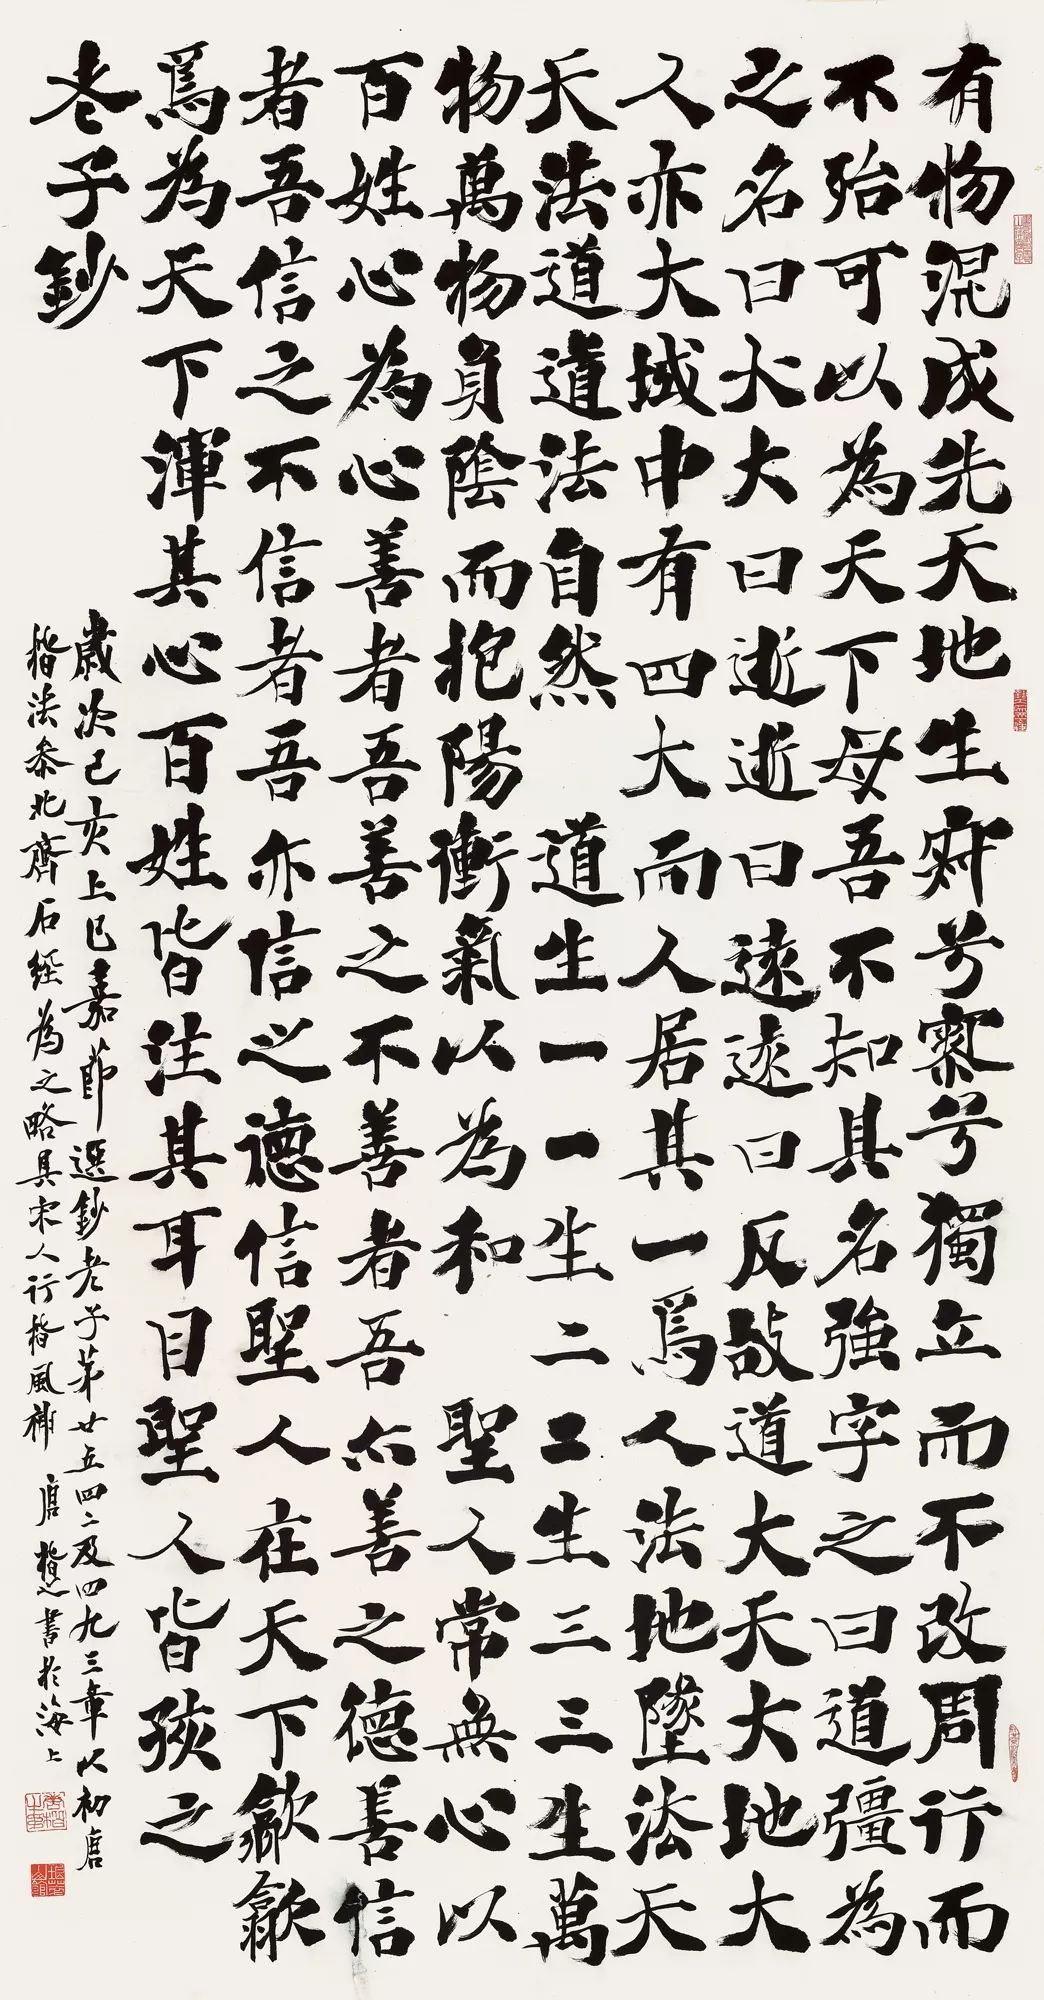 有物混成先天地生寂兮寥兮獨立而不改周行而
不殆可以為天下母吾不知其名強字之曰道彊為
之名曰大大曰逝逝曰遠遠曰反故道大天大地大
人亦大域中有四大而人居其一焉人法地墬法天
天法道道法自然 道生一一生二二生三三生萬
物萬物負陰而抱陽衝氣以為和 聖人常無心以
百姓心為心善者吾善之不善者吾亦善之德善信
者吾信之不信者吾亦信之德信聖人在天下歙歙
焉為天下渾其心百姓皆注其耳目聖人皆孩之
老子鈔
歲次己亥上巳嘉節選鈔老子苐廿五四二及四九三章以初唐
楷法叅北齊石經為之略具宋人行楷風神 唐楷之書於海上